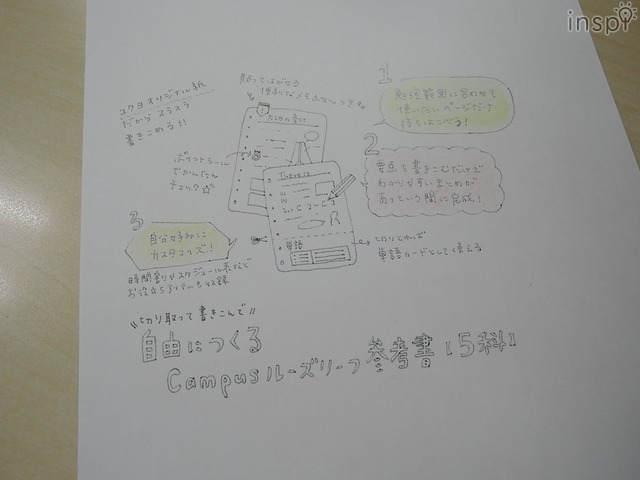 inspi
コクヨオリジナル紙
だからスラスラ
書きこめる!!
貼ってはがせる
便利なメモふせんつき
1
勉強範囲に合わせて
使いたいページだけ
持ちはこべる!
ポイントシール
でかんたん
チェック☆
2
要点を書きこむだけで
わかりやすいまとめが
あっという間に完成!
There is
3
自分好みに
カスタマイズ!
単語
切りとれば
単語カードとして使える
時間割りやスケジュール表など
お役立ちアイテムも収録
"切り取って書きこんで"
自由につくる
Campusルーズリーフ参考書【5科】